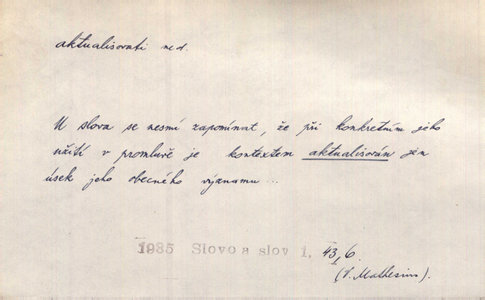 aktualisovati ned.
U slova se nesmí zapomínat, že při konkretním jeho
užití v promluvě je kontextem aktualisován jen
úsek jeho obecného významu ...
1935 Slovo a slov 1, 43, 6.
(V. Mathesius)